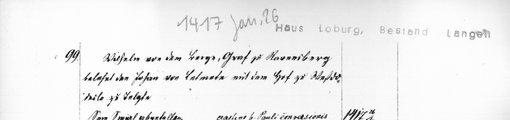 1417 Jan. 26
Haus Loburg, Bestand Langen
99. Wilhelm von dem Berge, Graf zu Ravensberg
belehnt den Johan von Letmate mit dem Hof zu
zu Telgte
crastino b. Pauli conversionis 1417 26/1